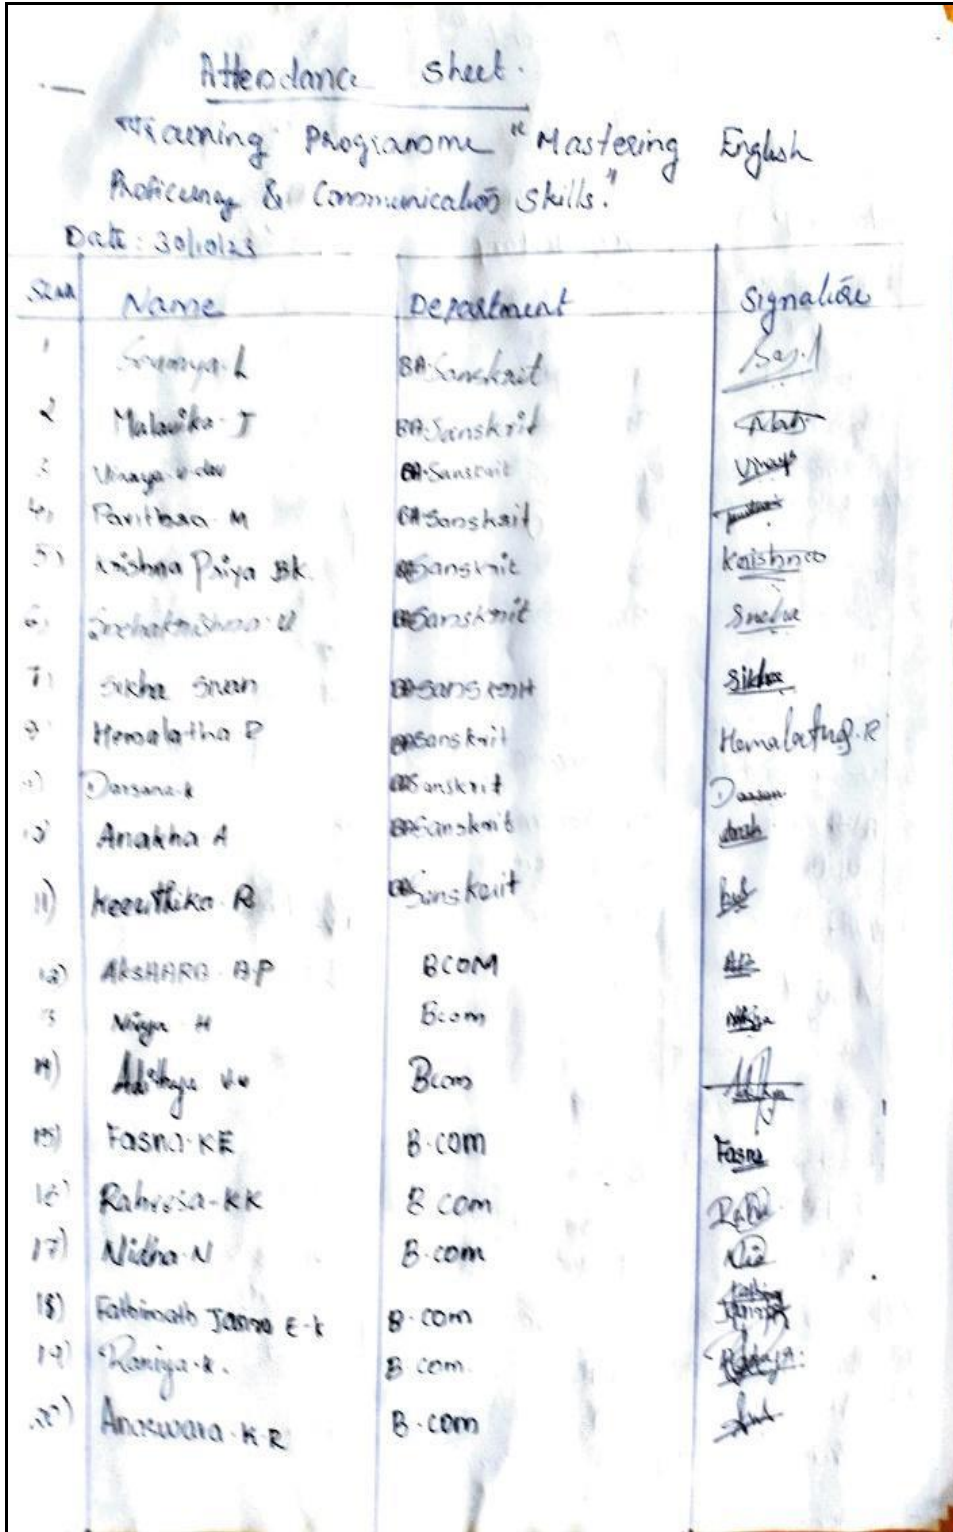 Attendance Sheet.
Training Programme "Mastering English
Proficiency & Communication Skills."
Date: 30/10/23
Sl.No Name Department Signature
1 Soumya. L BA. Sanskrit
2 Malavika. J BA. Sanskrit
3 Vinaya BA. Sanskrit Vinaya
4) Pavithra. M BA Sanskrit
5) Krishna Priya BK. BA Sanskrit Krishna
6) Snehakrishna. U BA Sanskrit Sneha
7) Sikha Sivan BA Sanskrit Sikha
8 Hemalatha R BA Sanskrit Hemalatha. R
9) Darsana. K BA Sanskrit
10) Anakha. A BA Sanskrit
11) Keerthika. R BA Sanskrit
12) AKSHARA. A.P BCOM
13 H Bcom
14) Adithya Bcom
15) Fasna. KE B.com Fasna
16) KK B com
17) Nidha. N B.com
18) Fathimath Jasna E-K B.com
19) Raniya. K. B.com.
20) Anaswara. K. R B.com